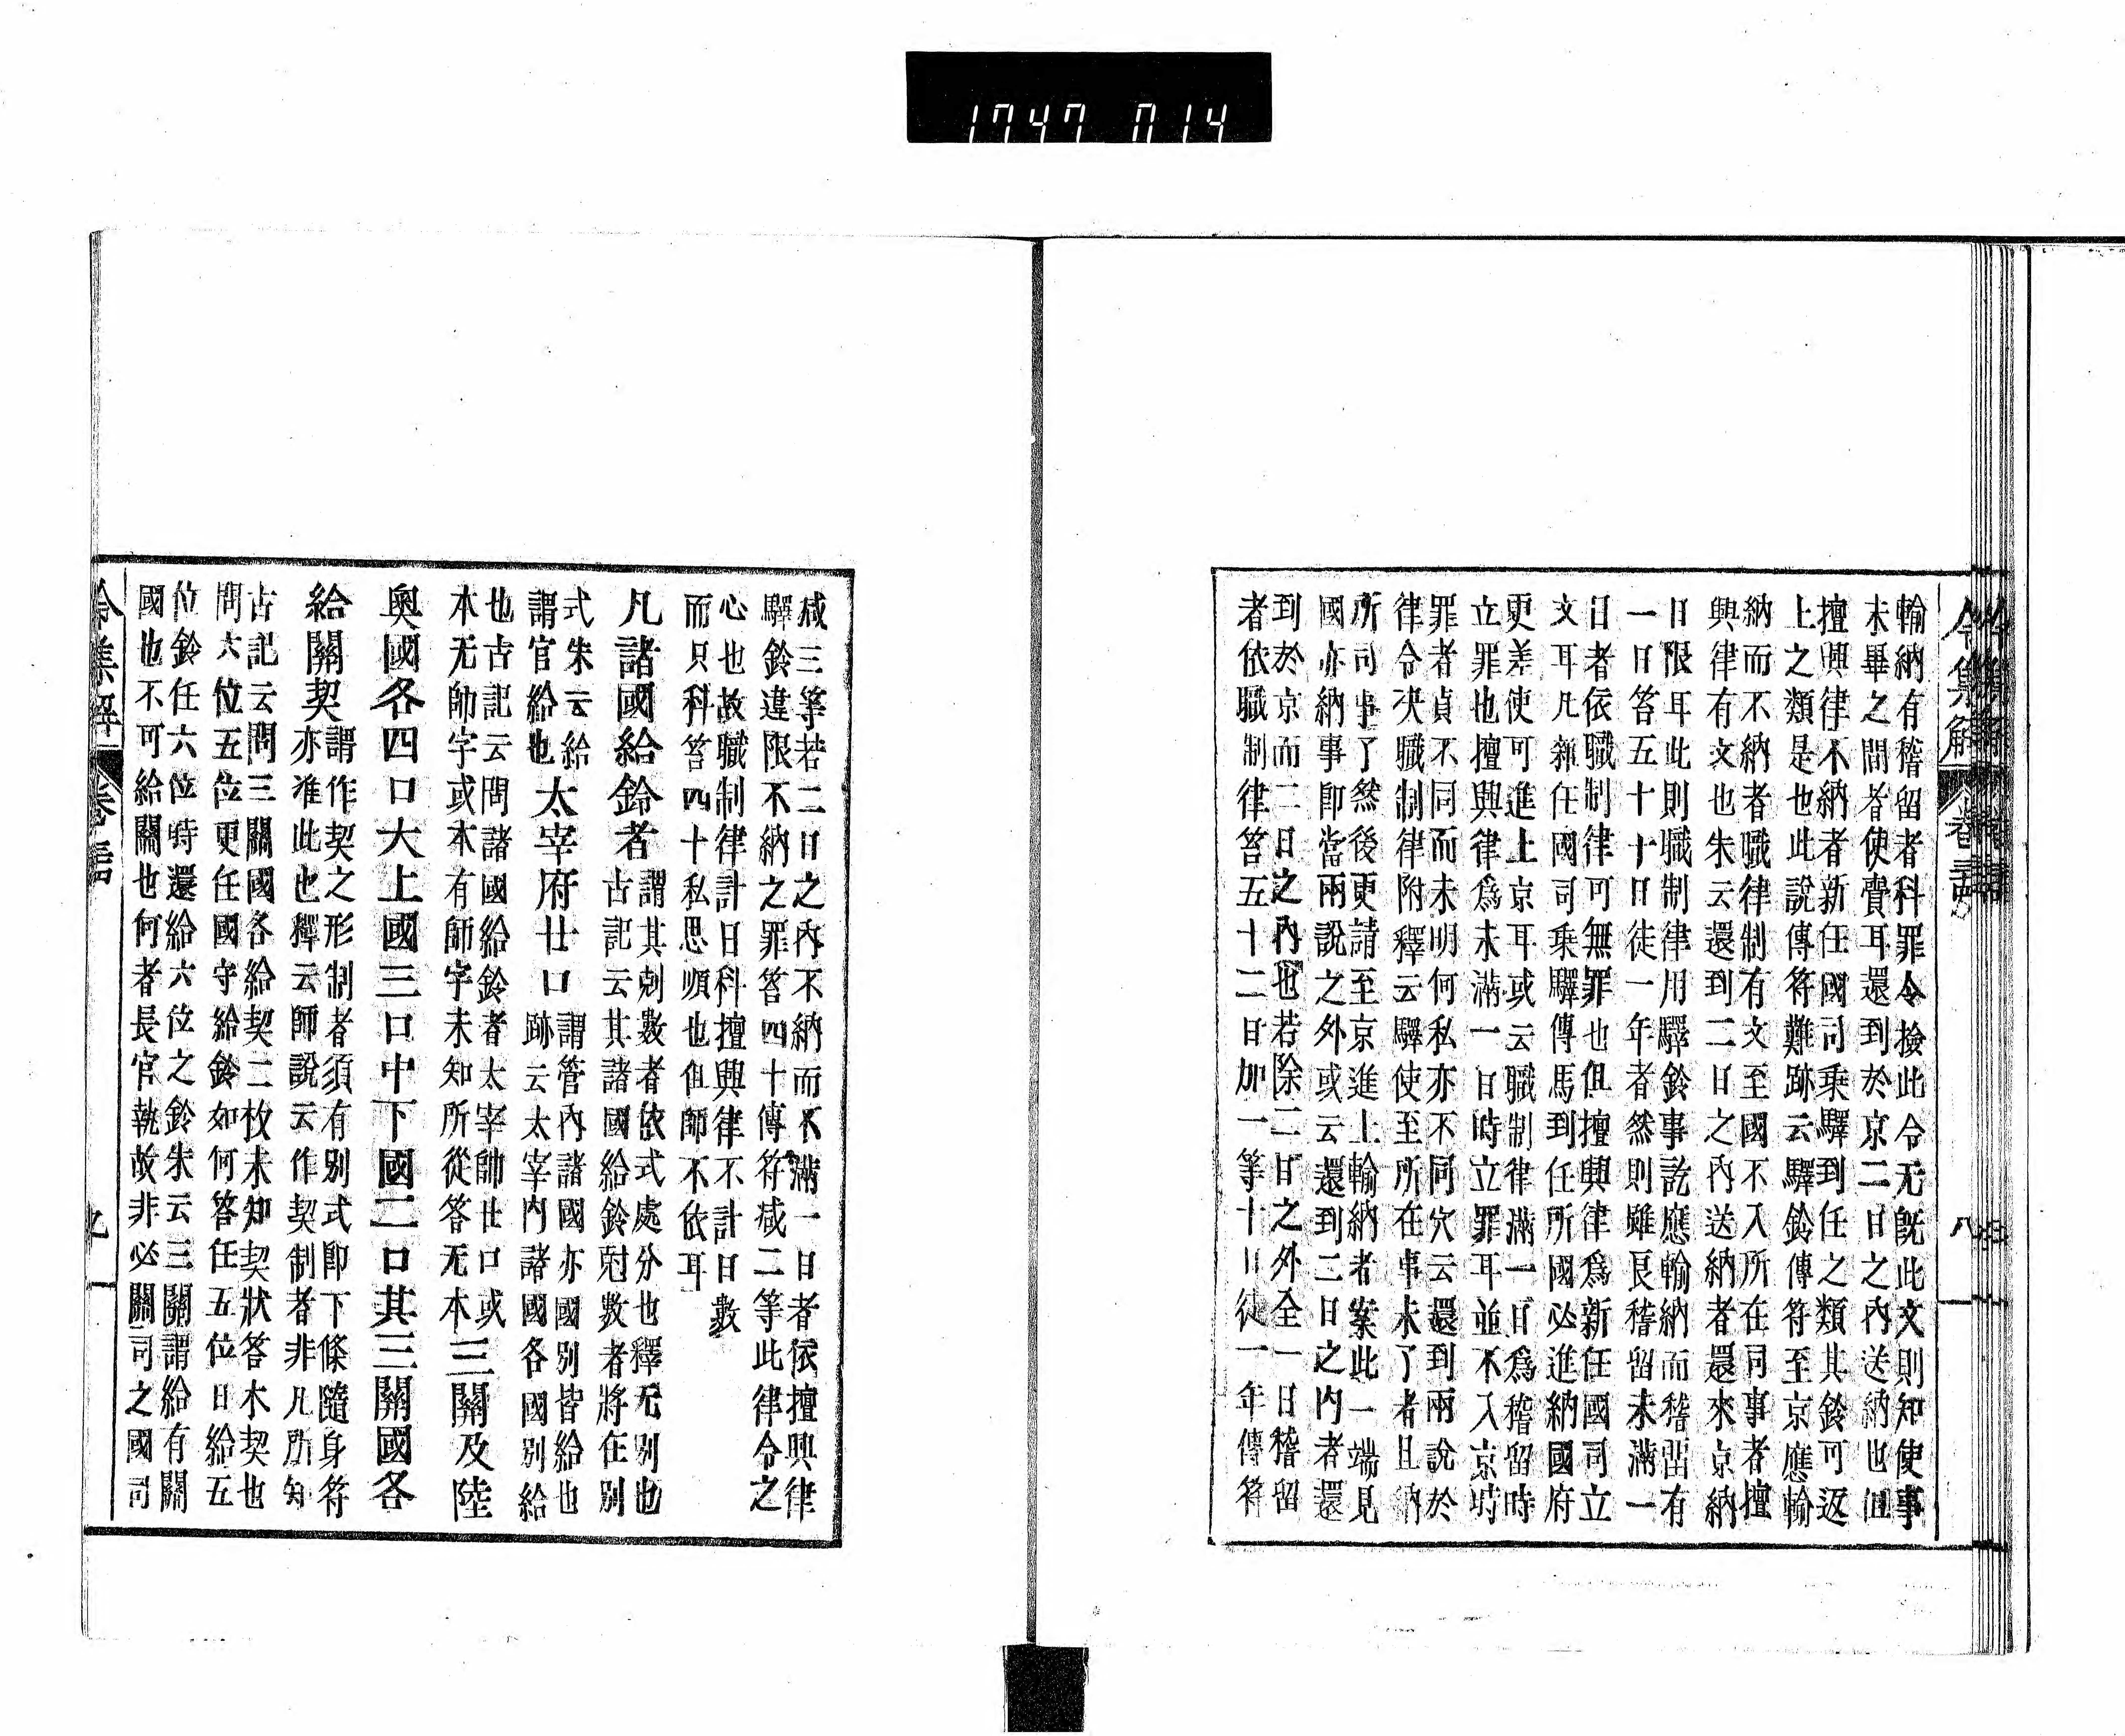 1747 014
令集解 卷三十四 八
輸納有稽留者科罪令撿此令无旣此文則知使事
未畢之間者使賷耳還到於京二日之內送納也但
擅興律不納者新任國司乘驛到任之類其鈴可返
上之類是也此說傳符難跡云驛鈴傳符至京應輸
納而不納者職律制有文至國不入所在同事者擅
興律有文也朱云還到二日之內送納者還來京納
日限耳此則職制律用驛鈴事訖應輸納而稽留有
一日笞五十十日徒一年者然則雖長稽留未滿一
日者依職制律可無罪也但擅興律爲新任國司立
文耳凡雜任國司乘驛傳馬到任所國必進納國府
更差使可進上京耳或云職制律滿一日爲稽留時
立罪也擅興律爲未滿一日時立罪耳並不入京時
罪者貞不同而未明何私亦不同穴云還到兩說於
律令決職制律附釋云驛使至所在事未了者且納
所司事了然後更請至京進上輸納者案此一端見
國亦納事卽當兩說之外或云還到二日之內者還
到於京而二日之內也若除二日之外全一日稽留
者依職制律笞五十二日加一等十日徒一年傳符
减三等若二日之內不納而不滿一日者依擅興律
驛鈴違限不納之罪笞四十傳符咸二等此律令之
心也故職制律計日科擅興律不計日數
而只科笞四十私思順也但師不依耳
凡諸國給鈴者
謂其剋數者依式處分也釋无別也
古記云其諸國給鈴尅數者將在別
式朱云給
謂官給也
太宰府廿口
謂管內諸國亦國別皆給也
跡云太宰內諸國各國別給
也古記云問諸國給鈴者太宰帥廿口或
本无帥字或本有師字未知所從答无本
三關及陸
奥國各四口大上國三口中下國二口其三關國各
給關契
謂作契之形制者須有別式卽下條隨身符
亦准此也釋云師說云作契制者非凡所知
古記云問三關國各給契二枚未知契狀答木契也
問六位五位更任國守給鈴如何答任五位日給五
位鈴任六位時還給六位之鈴朱云三關謂給有關
國也不可給關也何者長官執故非必關司之國司
令集解 卷三十四 九